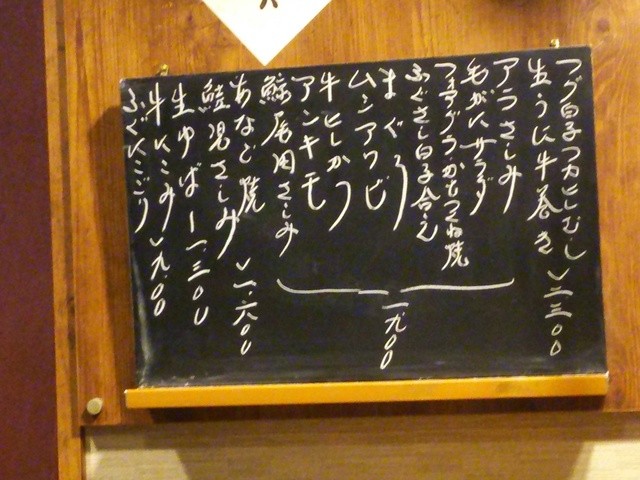 フグ白子フカヒレむし
生うに牛巻き 〉二三〇〇
アラさしみ
毛がにサラダ
フォアグラ・かもつくね焼
ふぐさし白子合え
まぐろ
ムシアワビ
牛ヒレかつ
アンキモ
鯨尾肉さしみ
一九〇〇
あなご焼
鮭児さしみ 〉一、六〇〇
生ゆばー一、三〇〇
牛にこみ
ふぐにこごり 〉九〇〇